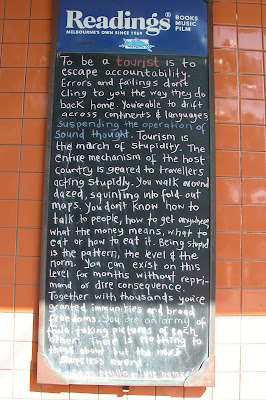 Readings® BOOKS
MUSIC
FILM
MELBOURNE'S OWN SINCE 1969
"To be a tourist is to
escape accountability.
Errors and failings don't
cling to you the way they do
back home. You're able to drift
across continents & languages
suspending the operation of
sound thought. Tourism is
the march of stupidity. The
entire mechanism of the host
country is geared to travellers
acting stupidly. You walk around
dazed, squinting into fold-out
maps. You don't know how to
talk to people, how to get anywhere
what the money means, what to
eat or how to eat it. Being stupid
is the pattern, the level & the
norm. You can exist on this
level for months without repri-
mand or dire consequence.
Together with thousands you're
granted immunities and broad
freedoms. You are an army of
fools, taking pictures of each
other. There is nothing to
think about but the next
shapeless event.
Delillo - The Names